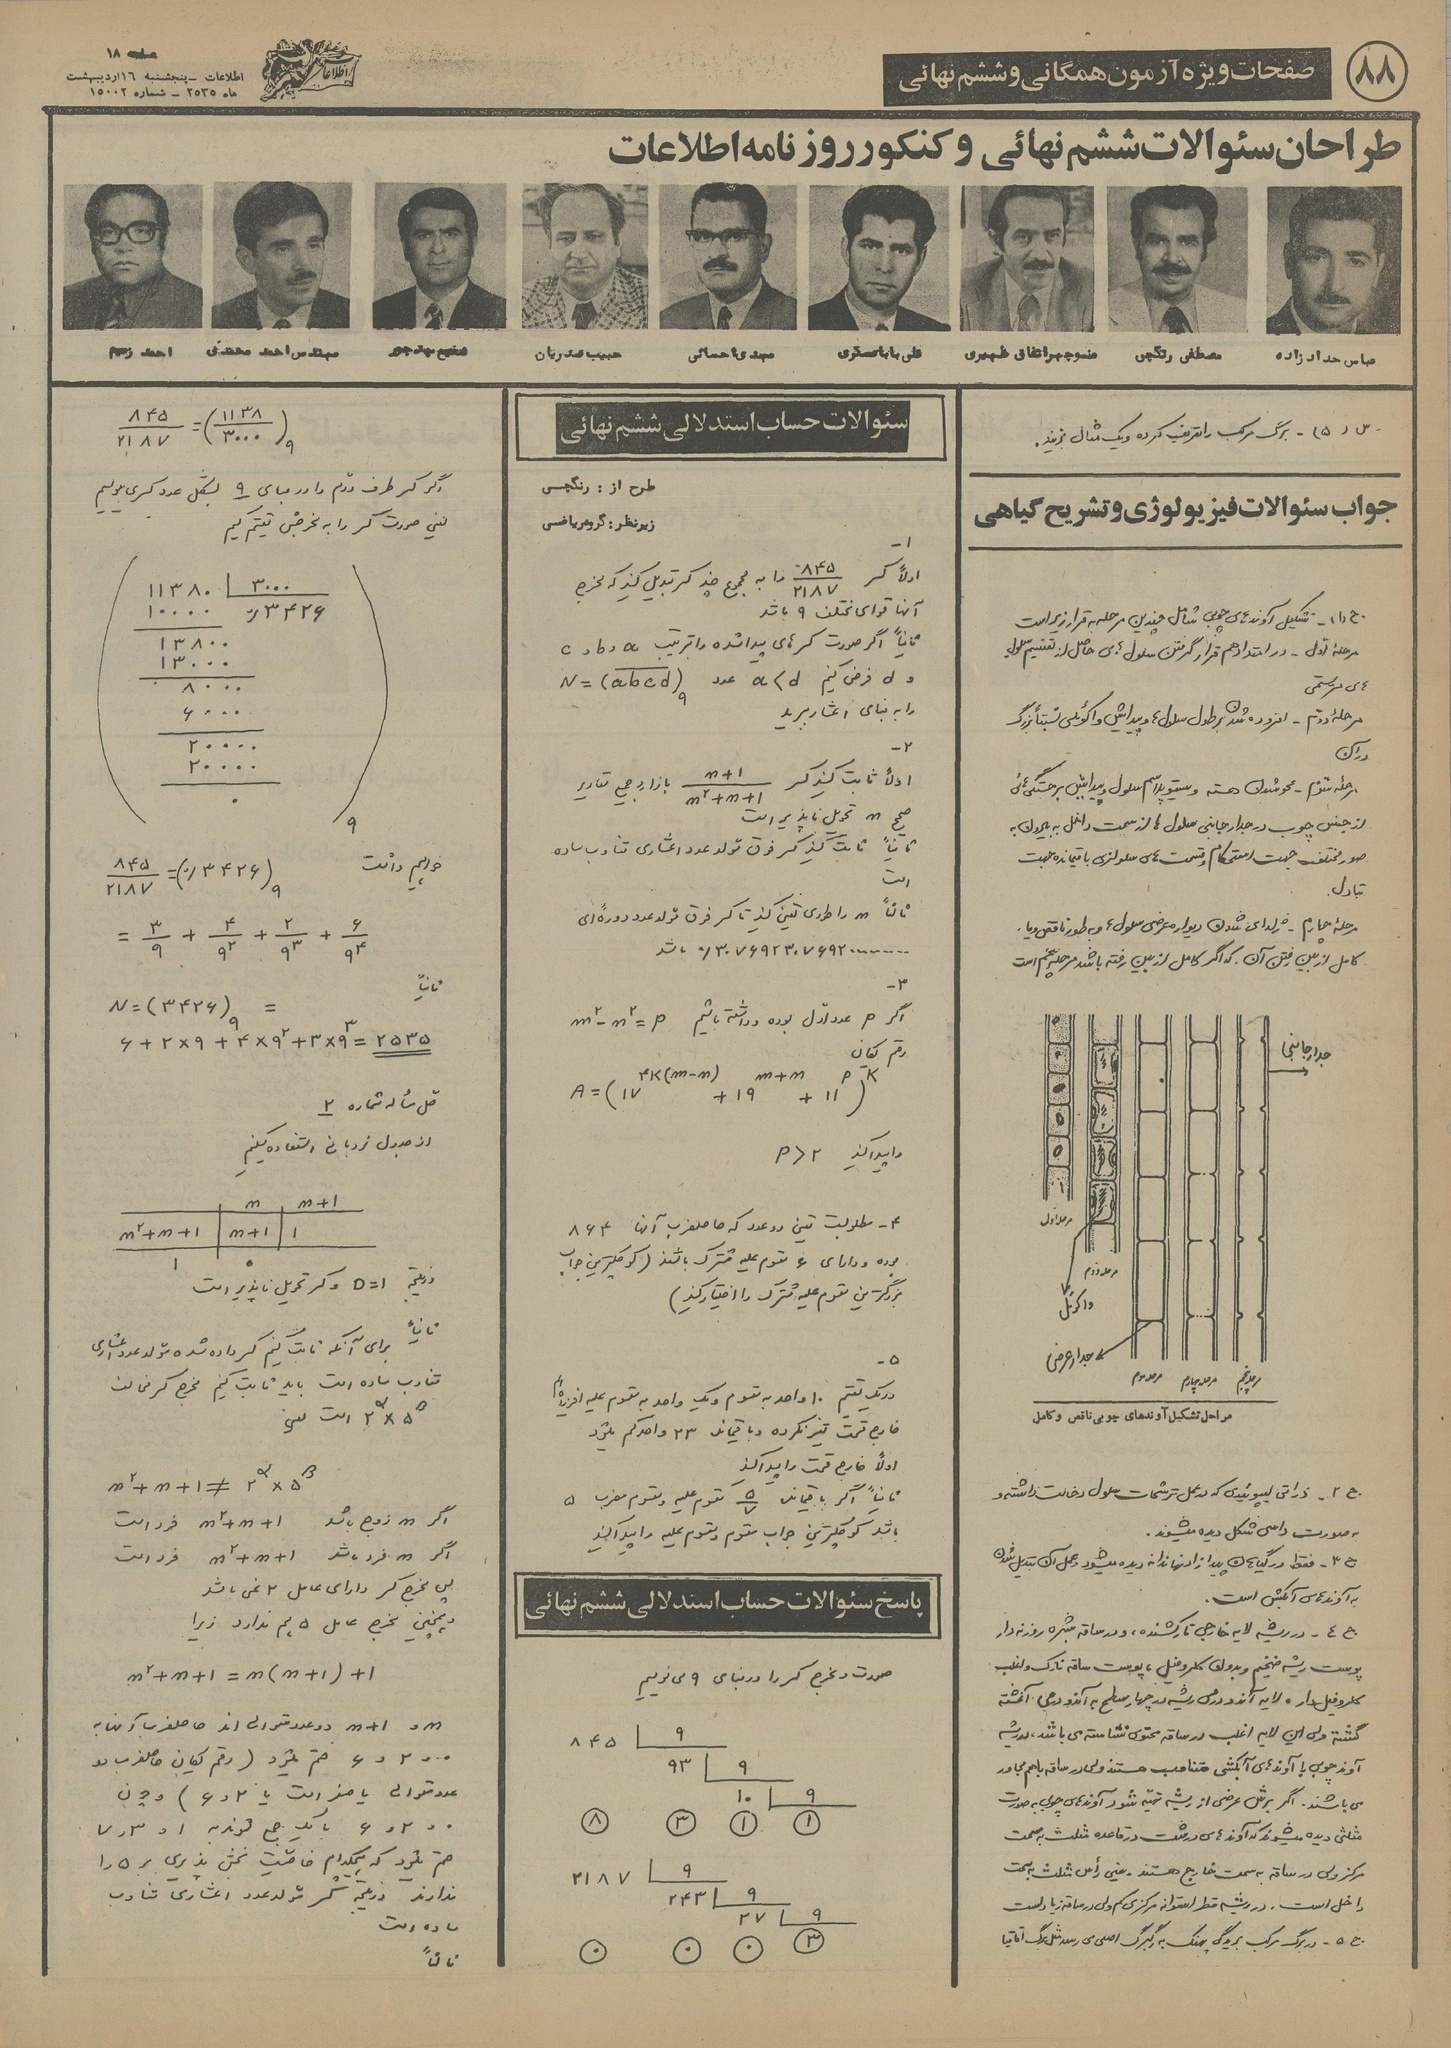 صفحه ۱۸
اطلاعات - پنجشنبه ۱۶ اردیبهشت
ماه ۲۵۳۵ - شماره ۱۵۰۰۲
صفحات ویژه آزمون همگانی و ششم نهائی
۸۸
طراحان سئوالات ششم نهائی و کنکور روزنامه اطلاعات
عباس حداد زاده
مصطفی رنگچی
منوچهر اتفاق ظهیری
علی باباعسگری
مهدی احسائی
حبیب صدریان
مهندس احمد محمدی
احمد رسیم
س (۵) - برگ مرکب را تعریف کرده و یک مثال بزنید.
جواب سئوالات فیزیولوژی و تشریح گیاهی
ج (۱) - تشکیل آوندهای چوبی شامل چندین مرحله به قرار زیر است
مرحله اول - در امتداد هم قرار گرفتن سلول های حاصل از تقسیم سلول
های مریستمی
مرحله دوم - افزوده شدن بر طول سلول ها و پیدایش واکوئلی نسبتاً بزرگ
در آن
مرحله سوم - محو شدن هسته و سیتوپلاسم سلول و پیدایش برجستگی های
از جنس چوب در جدار جانبی سلول ها از سمت داخل به بیرون به
صور مختلف جهت استحکام و قسمت های سلولزی باقیمانده جهت
تبادل.
کامل از بین رفتن آن. که اگر کامل از بین رفته باشد مرحله پنجم است
جدار جانبی
مرحله اول
مرحله دوم
مرحله سوم
مرحله چهارم
مرحله پنجم
واکوئل
جدار عرضی
مراحل تشکیل آوندهای چوبی ناقص و کامل
ج ۲ - ذراتی لیپوئیدی که در عمل ترشحات سلول دخالت داشته و
به صورت داسی شکل دیده میشوند.
ج ۳ - فقط در گیاهان پیدازاد نهاندانه دیده میشود و عمل آن تبدیل شدن
به آوندهای آبکش است.
ج ٤ - در ریشه لایه خارجی تارکشنده، و در ساقه بشره روزنه دار
پوست ریشه ضخیم و بدون کلروفیل، پوست ساقه نازک و اغلب
کلروفیل دار، لایه آندودرمی ریشه در چهار سطح به آندودرمی آغشته
گشته ولی این لایه اغلب در ساقه محتوی نشاسته می باشد، در ریشه
آوند چوبی با آوندهای آبکشی متناوب هستند ولی در ساقه باهم مجاور
می باشند. اگر برش عرضی از ریشه تهیه شود آوندهای چوبی به صورت
مثلثی دیده میشوند که آوندهای درشت در قاعده مثلث به سمت
مرکز ولی در ساقه به سمت خارج هستند. یعنی رأس مثلث به سمت
داخل است. در ریشه قطر استوانه مرکزی کم ولی در ساقه زیاد است
ج ۵ - در برگ مرکب بریدگی پهنک به رگبرگ اصلی می رسد مثل برگ اقاقیا
سئوالات حساب استدلالی ششم نهائی
طرح از : رنگچی
زیر نظر : گروه ریاضی
۱ -
اولاً کسر ۸۴۵/۲۱۸۷ را به مجموع چند کسر تبدیل کنید که مخرج
آنها قوای مختلف ۹ باشد
ثانیاً اگر صورت کسرهای پیدا شده را بترتیب a و b و c
و d فرض کنیم a < d عدد N = (abcd)₉
را به مبنای اعشار ببرید
۲ -
اولاً ثابت کنید کسر (n+1)/(n²+n+1) بازاء جمیع مقادیر
صحیح n تحویل ناپذیر است
ثانیاً ثابت کنید کسر فوق مولد عدد اعشاری متناوب ساده
است
ثالثاً n را طوری تعیین کنید تا کسر فوق مولد عدد دوره ای
۰/۳۰۷۶۹۲۳۰۷۶۹۲....... باشد
۳ -
اگر P عدد اول بوده و داشته باشیم m² - n² = P
رقم یکان
A = (۱۷^{۴K(m-n)} + ۱۹^{m+n} + ۱۱^{P})^{K}
را پیدا کنید P > ۲
۴ - مطلوبست تعیین دو عدد که حاصلضرب آنها ۸۶۴
بوده و دارای ۶ مقسوم علیه مشترک باشند (کوچکترین جواب
بزرگترین مقسوم علیه مشترک را اختیار کنید)
۵ -
در یک تقسیم ۱۰ واحد به مقسوم و یک واحد به مقسوم علیه افزوده ایم
خارج قسمت تغییر نکرده و باقیمانده ۲۳ واحد کم میشود
اولاً خارج قسمت را پیدا کنید
ثانیاً اگر باقیمانده ۵/۷ مقسوم علیه و مقسوم مضرب ۵
باشد کوچکترین جواب مقسوم و مقسوم علیه را پیدا کنید
پاسخ سئوالات حساب استدلالی ششم نهائی
صورت و مخرج کسر را در مبنای ۹ می نویسیم
۸۴۵ | ۹
۹۳ | ۹
۱۰ | ۹
۸ ۳ ۱ ۱
۲۱۸۷ | ۹
۲۴۳ | ۹
۲۷ | ۹
۰ ۰ ۰ ۳
۸۴۵/۲۱۸۷ = (۱۱۳۸/۳۰۰۰)₉
اگر کسر طرف دوم را در مبنای ۹ بشکل عدد کسری بنویسیم
یعنی صورت کسر را به مخرجش تقسیم کنیم
۱۱۳۸۰ | ۳۰۰۰
۱۰۰۰۰ ۰/۳۴۲۶
۱۳۸۰۰
۱۳۰۰۰
۸۰۰۰
۶۰۰۰
۲۰۰۰۰
۲۰۰۰۰
۰
۹
خواهیم داشت ۸۴۵/۲۱۸۷ = (۰/۳۴۲۶)₉
= ۳/۹ + ۴/۹² + ۲/۹³ + ۶/۹⁴
ثانیاً
N = (۳۴۲۶)₉ =
۶ + ۲×۹ + ۴×۹² + ۳×۹³ = ۲۵۳۵
حل مسأله شماره ۲
از جدول نردبانی استفاده میکنیم
n n+1
n²+n+1 n+1 1
1 0
نتیجه D = 1 و کسر تحویل ناپذیر است
ثانیاً
برای آنکه ثابت کنیم کسر داده شده مولد عدد اعشاری
متناوب ساده است باید ثابت کنیم مخرج کسر مخالف
۲^α × ۵^β است یعنی
n² + n + 1 ≠ ۲^α × ۵^β
اگر n زوج باشد n²+n+1 فرد است
اگر n فرد باشد n²+n+1 فرد است
پس مخرج کسر دارای عامل ۲ نمی باشد
همچنین مخرج عامل ۵ هم ندارد زیرا
n²+n+1 = n(n+1) + 1
n و n+1 دو عدد متوالی اند حاصلضرب آنها به
۰ و ۲ و ۶ ختم میشود (رقم یکان حاصلضرب دو
عدد متوالی یا صفر است یا ۲ و ۶) و چون
۰ و ۲ و ۶ با یک جمع شوند به ۱ و ۳ و ۷
ختم میشود که هیچکدام خاصیت بخش پذیری بر ۵ را
ندارند در نتیجه کسر مولد عدد اعشاری متناوب
ساده است
ثالثاً